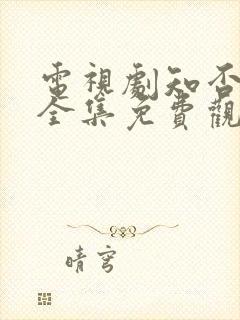 電視劇知否
全集免費觀
晴穹